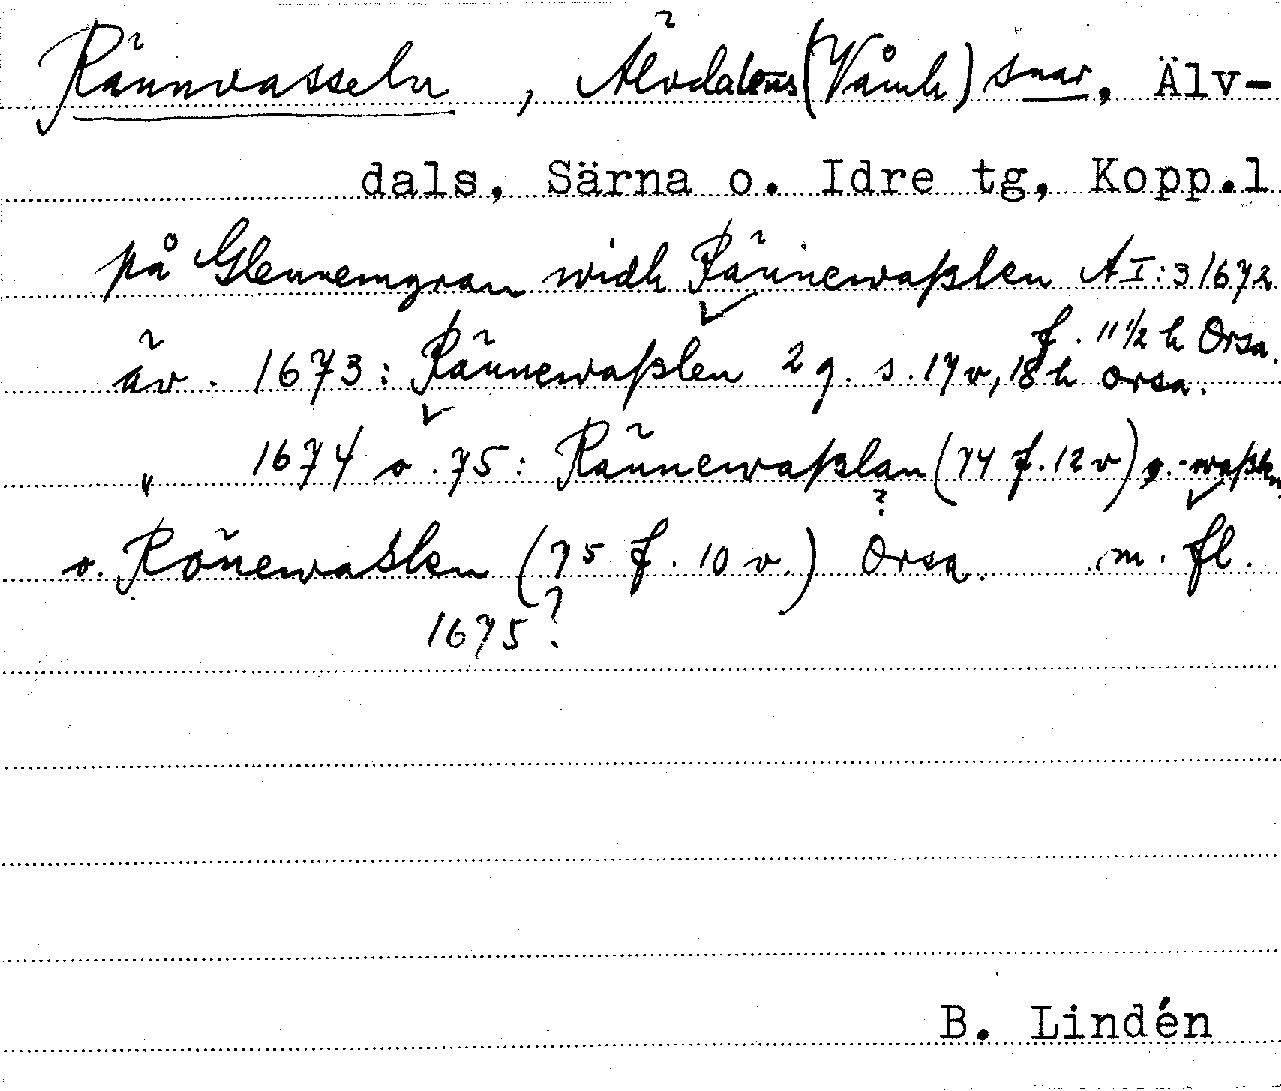 Rännvasseln, Älvdalens (Våmh) snar, Älv-
dals, Särna o. Idre tg, Kopp.l
på Glennemgran widh Rännewaßlen AI:3 1672
f. 11 1/2 h Orsa.
äv. 1673: Rännewaßlen 2 g. s. 17 v, 18 h Orsa.
" 1674 o. 75: Rännewaßlan (74 f. 12 v) o. -waßlen
?
o. Rönewaßlen (75 f. 10 v.) Orsa. m. fl.
1675?
B. Lindén